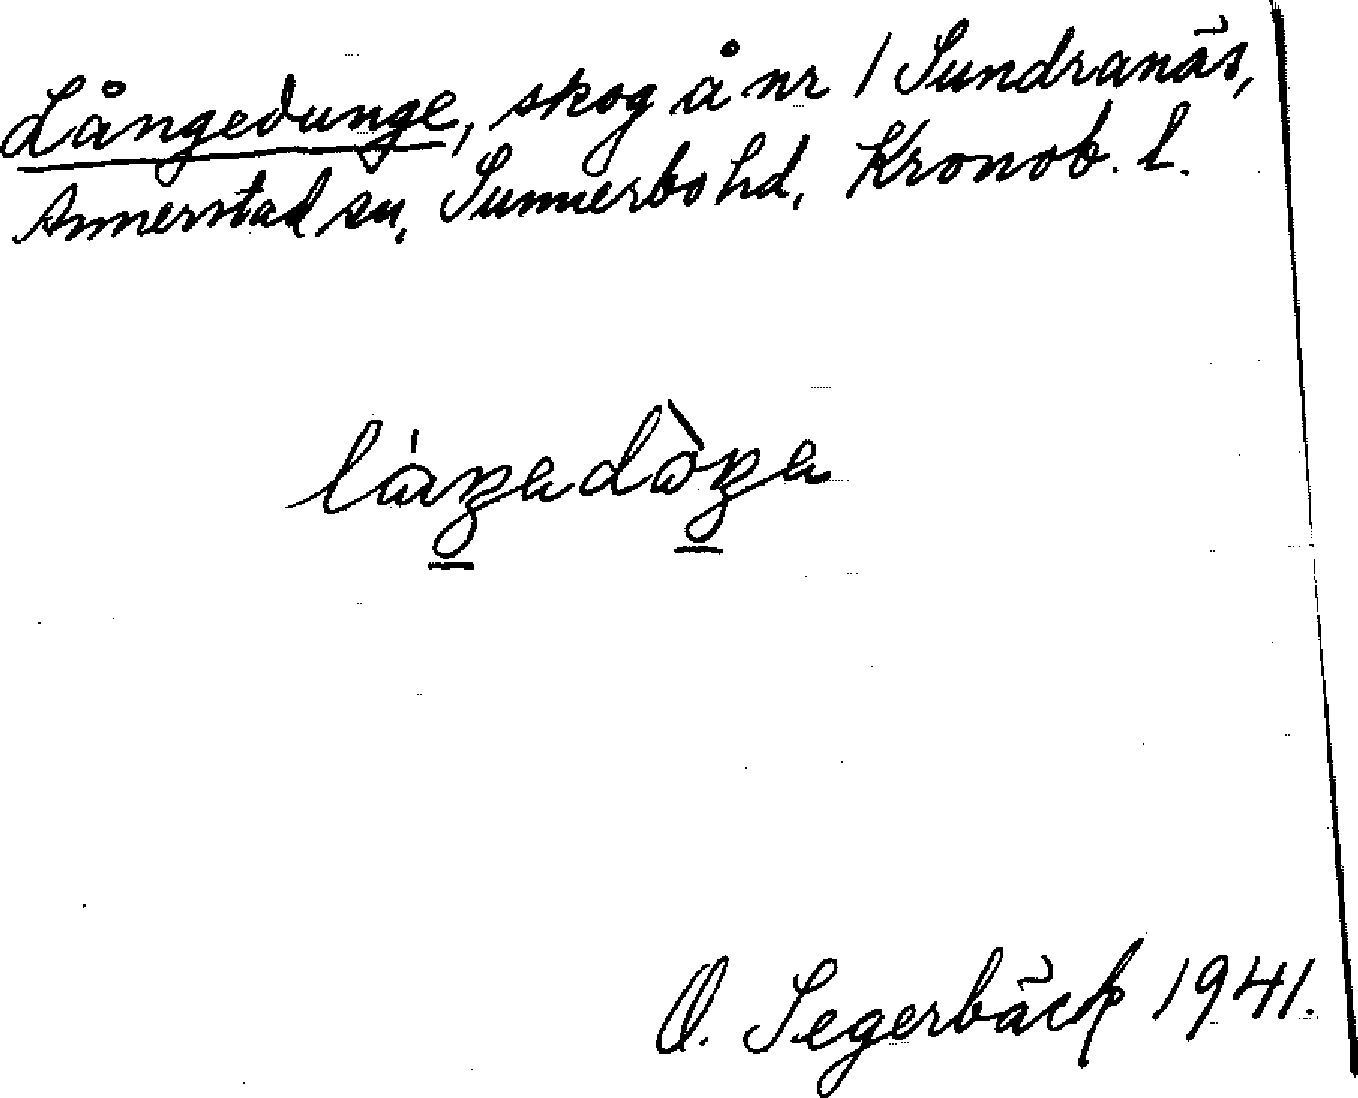 Långedunge, skog å nr 1 Sundranäs,
Annerstad sn, Sunnerbo hd, Kronob. l.
O. Segerbäck 1941.